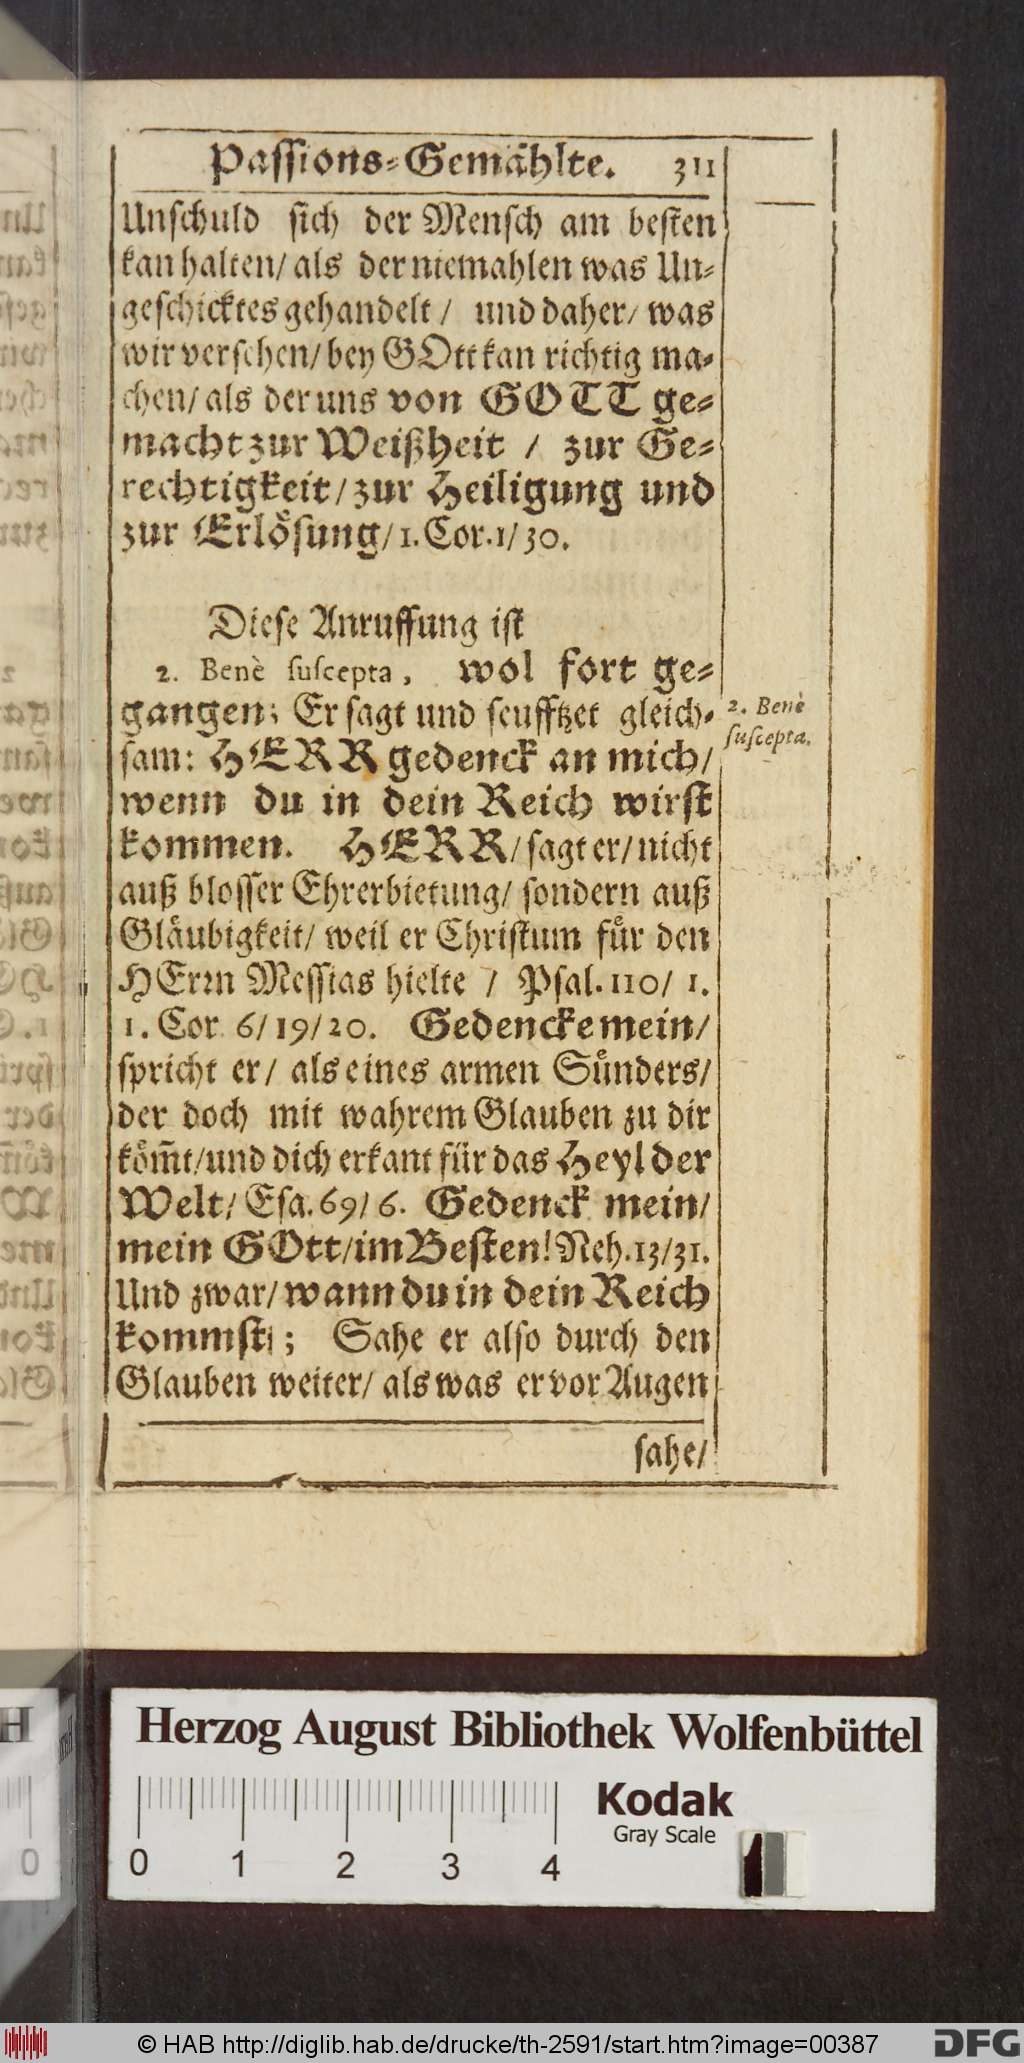 Passions-Gemählte. 311
Unschuld sich der Mensch am besten
kan halten/ als der niemahlen was Un-
geschicktes gehandelt / und daher/ was
wir versehen/ bey GOtt kan richtig ma-
chen/ als der uns von GOTT ge-
macht zur Weißheit / zur Ge-
rechtigkeit/ zur Heiligung und
zur Erlösung/ 1. Cor. 1/ 30.
Diese Anruffung ist
2. Benè suscepta, wol fort ge-
gangen; Er sagt und seufftzet gleich-
sam: HERR gedenck an mich/
wenn du in dein Reich wirst
kommen. HERR/ sagt er/ nicht
auß blosser Ehrerbietung/ sondern auß
Gläubigkeit/ weil er Christum für den
HErrn Messias hielte / Psal. 110/ 1.
1. Cor 6/ 19/ 20. Gedencke mein/
spricht er/ als eines armen Sünders/
der doch mit wahrem Glauben zu dir
köm̃t/ und dich erkant für das Heyl der
Welt/ Esa. 69/ 6. Gedenck mein/
mein GOtt/ im Besten! Neh. 13/ 31.
Und zwar/ wann du in dein Reich
kommst; Sahe er also durch den
Glauben weiter/ als was er vor Augen
sahe/
2. Benè
suscepta.
Herzog August Bibliothek Wolfenbüttel
Kodak
Gray Scale
0 1 2 3 4
© HAB http://diglib.hab.de/drucke/th-2591/start.htm?image=00387
DFG